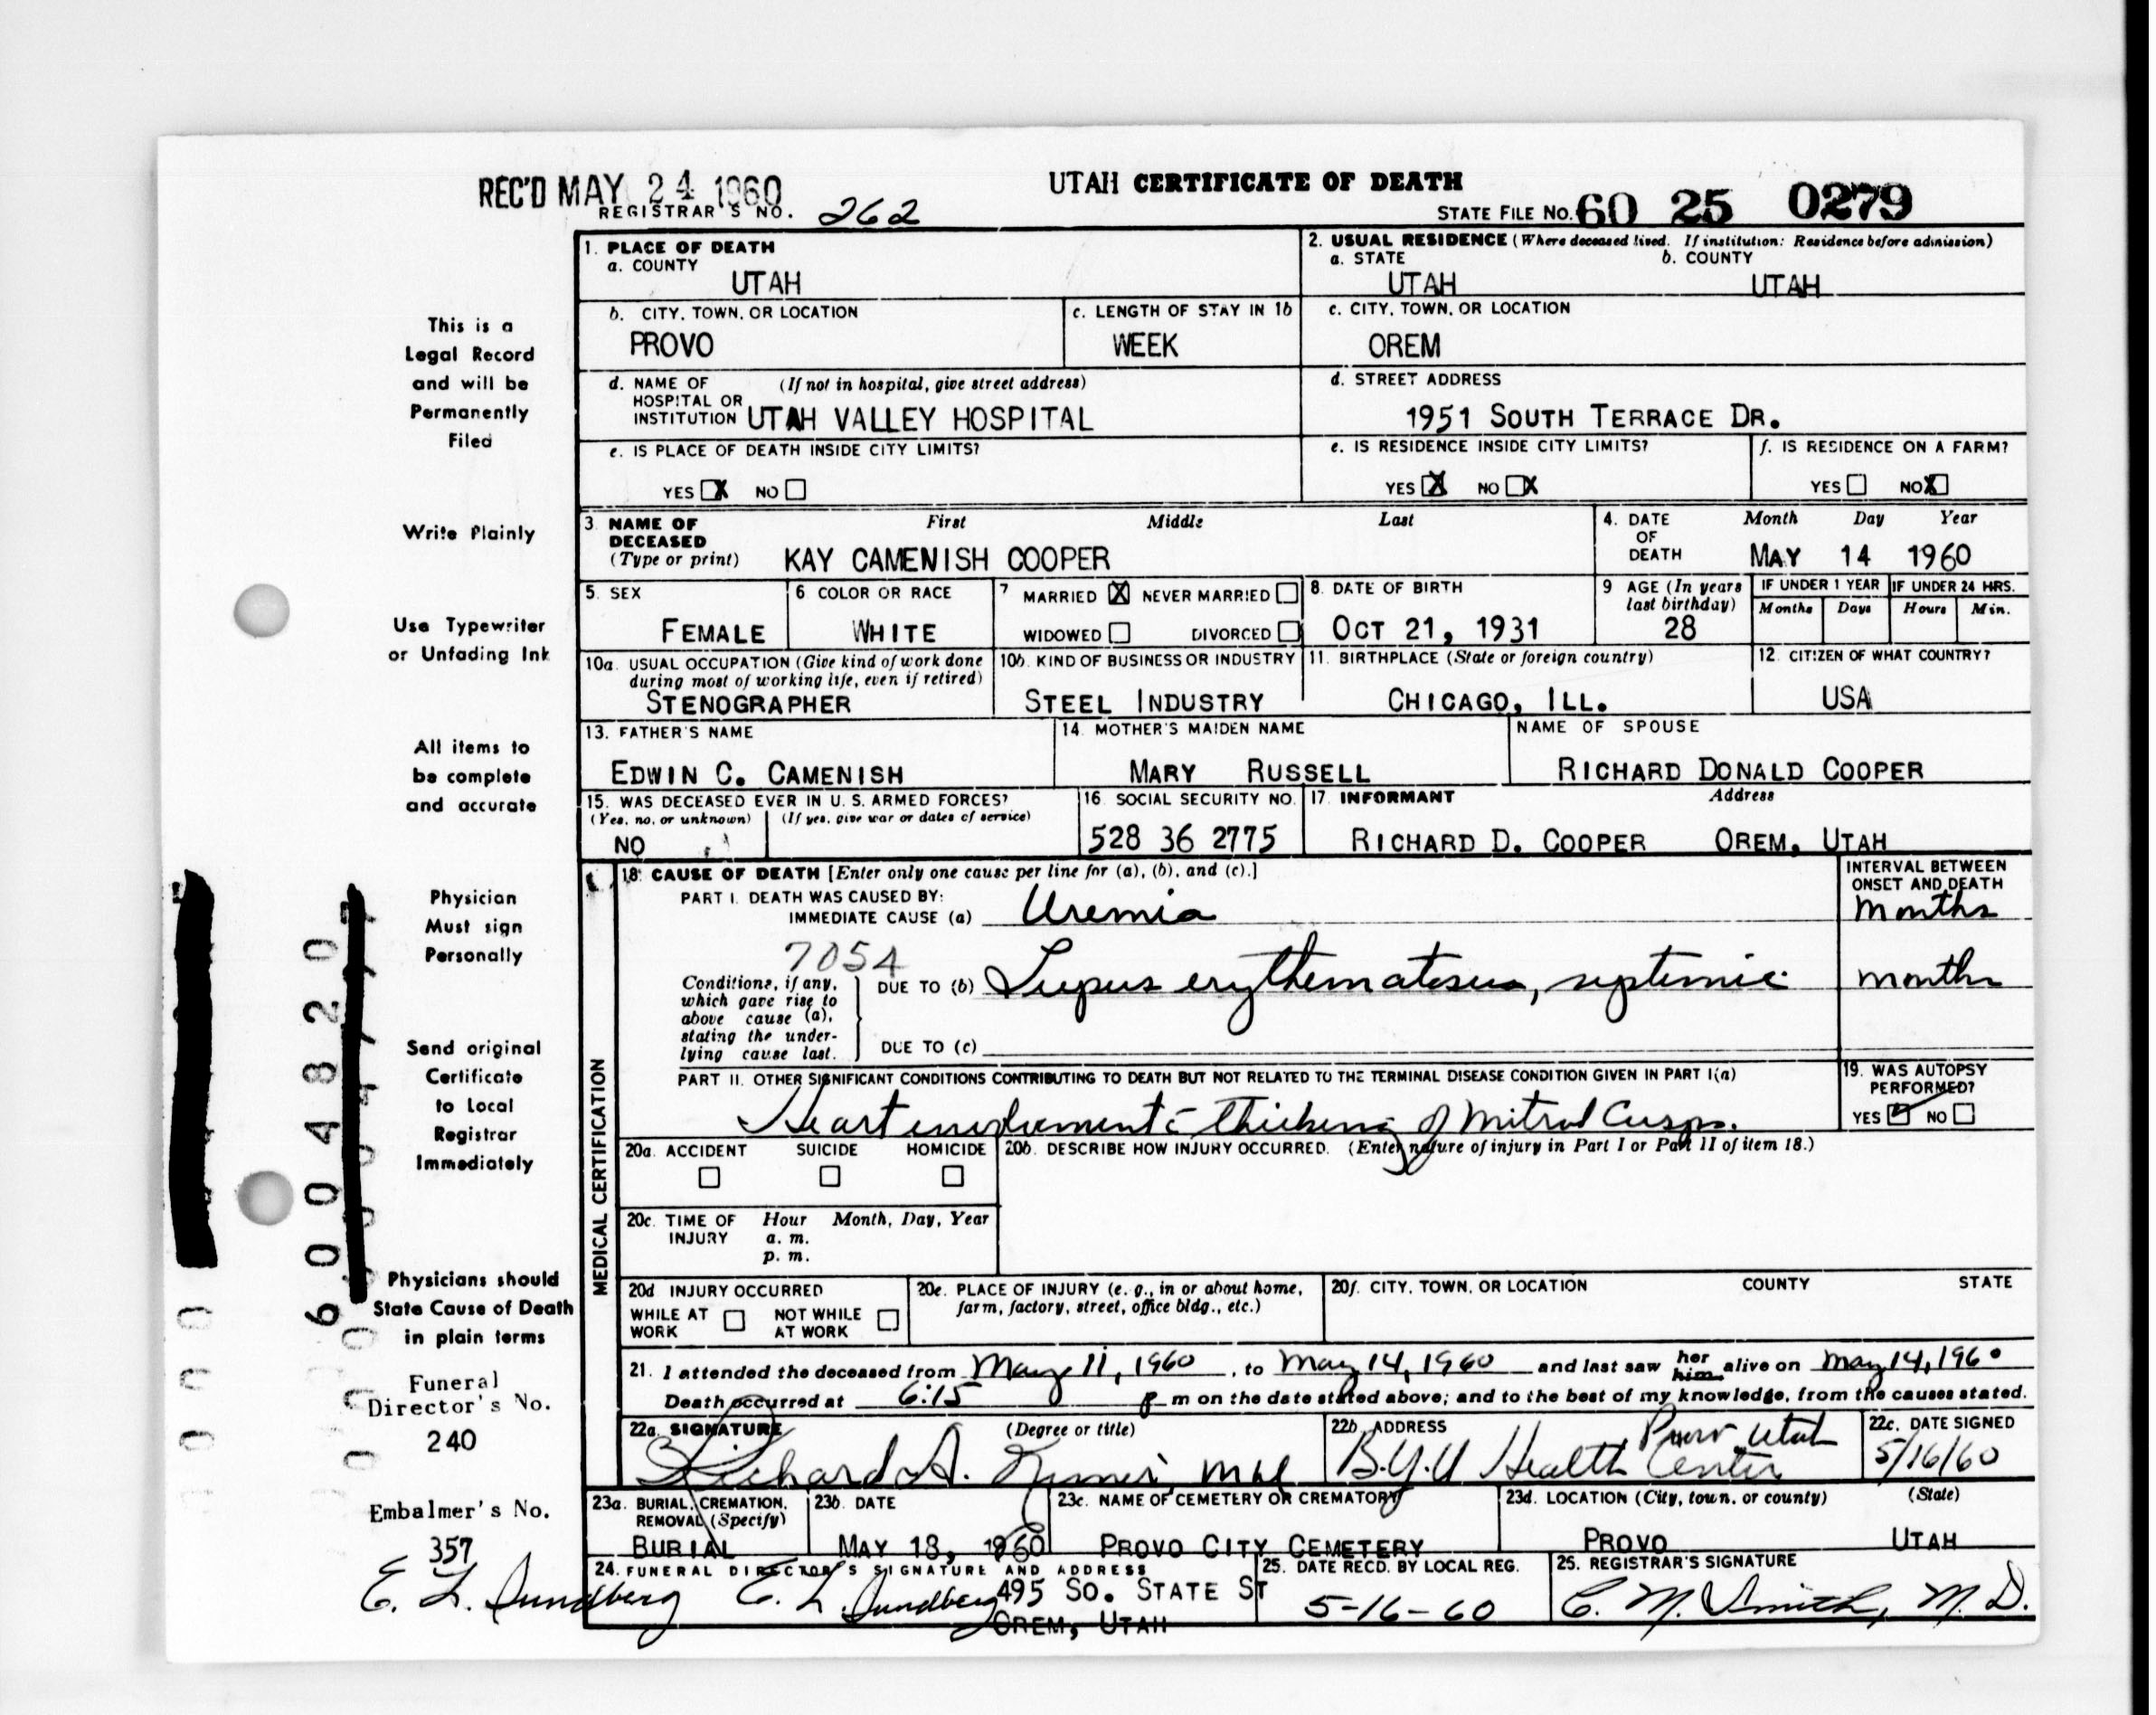 REC'D MAY 24 1960
UTAH CERTIFICATE OF DEATH
REGISTRAR'S NO. 262
STATE FILE NO. 60 25 0279
1. PLACE OF DEATH
a. COUNTY
UTAH
2. USUAL RESIDENCE (Where deceased lived. If institution: Residence before admission)
a. STATE b. COUNTY
UTAH UTAH
b. CITY, TOWN, OR LOCATION
PROVO
c. LENGTH OF STAY IN 1b
WEEK
c. CITY, TOWN, OR LOCATION
OREM
d. NAME OF (If not in hospital, give street address)
HOSPITAL OR
INSTITUTION UTAH VALLEY HOSPITAL
d. STREET ADDRESS
1951 SOUTH TERRACE DR.
e. IS PLACE OF DEATH INSIDE CITY LIMITS?
YES X NO
e. IS RESIDENCE INSIDE CITY LIMITS?
YES X NO X
f. IS RESIDENCE ON A FARM?
YES NO X
3. NAME OF DECEASED (Type or print) First Middle Last
KAY CAMENISH COOPER
4. DATE OF DEATH Month Day Year
MAY 14 1960
5. SEX
FEMALE
6 COLOR OR RACE
WHITE
7 MARRIED X NEVER MARRIED
WIDOWED DIVORCED
8. DATE OF BIRTH
OCT 21, 1931
9 AGE (In years last birthday)
28
IF UNDER 1 YEAR IF UNDER 24 HRS.
Months Days Hours Min.
10a. USUAL OCCUPATION (Give kind of work done
during most of working life, even if retired)
STENOGRAPHER
10b. KIND OF BUSINESS OR INDUSTRY
STEEL INDUSTRY
11. BIRTHPLACE (State or foreign country)
CHICAGO, ILL.
12. CITIZEN OF WHAT COUNTRY?
USA
13. FATHER'S NAME
EDWIN C. CAMENISH
14. MOTHER'S MAIDEN NAME
MARY RUSSELL
NAME OF SPOUSE
RICHARD DONALD COOPER
15. WAS DECEASED EVER IN U. S. ARMED FORCES?
(Yes, no, or unknown) (If yes, give war or dates of service)
NO
16. SOCIAL SECURITY NO.
528 36 2775
17. INFORMANT Address
RICHARD D. COOPER OREM, UTAH
MEDICAL CERTIFICATION
18. CAUSE OF DEATH [Enter only one cause per line for (a), (b), and (c).]
INTERVAL BETWEEN
ONSET AND DEATH
PART I. DEATH WAS CAUSED BY:
IMMEDIATE CAUSE (a) Uremia months
7054
Conditions, if any,
which gave rise to
above cause (a),
stating the under-
lying cause last.
DUE TO (b) Lupus erythematosus, systemic months
DUE TO (c)
PART II. OTHER SIGNIFICANT CONDITIONS CONTRIBUTING TO DEATH BUT NOT RELATED TO THE TERMINAL DISEASE CONDITION GIVEN IN PART I(a)
Heart involvement c thickening of Mitral Cusps.
19. WAS AUTOPSY
PERFORMED?
YES NO
20a. ACCIDENT SUICIDE HOMICIDE
20b. DESCRIBE HOW INJURY OCCURRED. (Enter nature of injury in Part I or Part II of item 18.)
20c. TIME OF INJURY Hour Month, Day, Year
a. m.
p. m.
20d INJURY OCCURRED
WHILE AT WORK NOT WHILE AT WORK
20e. PLACE OF INJURY (e. g., in or about home,
farm, factory, street, office bldg., etc.)
20f. CITY, TOWN, OR LOCATION COUNTY STATE
21. I attended the deceased from May 11, 1960, to May 14, 1960 and last saw her him alive on May 14, 1960
Death occurred at 6:15 p m on the date stated above; and to the best of my knowledge, from the causes stated.
22a. SIGNATURE (Degree or title)
Richard A.
22b. ADDRESS
B.Y.U Health Center Provo Utah
22c. DATE SIGNED
5/16/60
23a. BURIAL, CREMATION,
REMOVAL (Specify)
BURIAL
23b. DATE
MAY 18, 1960
23c. NAME OF CEMETERY OR CREMATORY
PROVO CITY CEMETERY
23d. LOCATION (City, town, or county) (State)
PROVO UTAH
24. FUNERAL DIRECTOR'S SIGNATURE AND ADDRESS
E. L. Sundberg 495 SO. STATE ST
OREM, UTAH
25. DATE RECD. BY LOCAL REG.
5-16-60
25. REGISTRAR'S SIGNATURE
C. M. Smith, M. D.
This is a
Legal Record
and will be
Permanently
Filed
Write Plainly
Use Typewriter
or Unfading Ink
All items to
be complete
and accurate
Physician
Must sign
Personally
Send original
Certificate
to Local
Registrar
Immediately
Physicians should
State Cause of Death
in plain terms
Funeral
Director's No.
240
Embalmer's No.
357
E. L. Sundberg
6004820